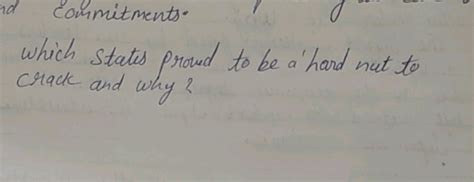 nd Commitments.
which states proud to be a' hard nut to
crack and why?